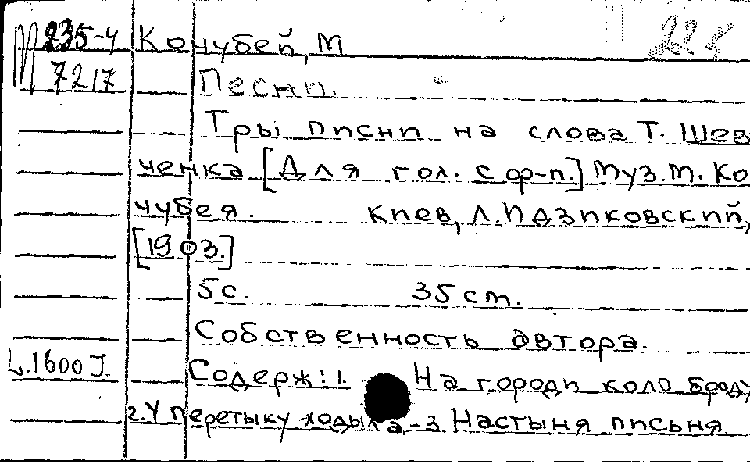 М 235-4 Кочубей, М 228
7217 Песни.
Тры писни на слова Т. Шев
ченка [Для гол. с ф-п.] Муз. М. Ко
чубея. Киев, Л. Идзиковский,
[1903.]
5 с. 35 cm.
Собственность автора.
L.1600 J. Содерж: 1. На городи коло броду
2. У перетыку ходыла - 3. Настыня писня